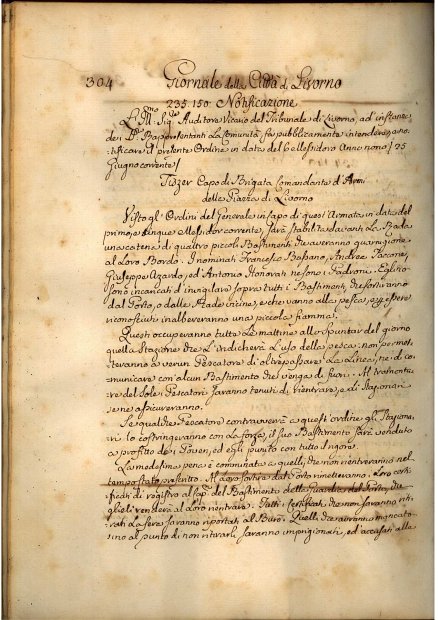 304 Giornale della Città di Livorno
235. 150. Notificazione
L'Ill.mo Sig.re Auditore Vicario del Tribunale di Livorno, ad instanza
dei Rappresentanti la Comunità, fa pubblicamente intendere, e no-
tificare il presente Ordine in data del 6 Messidoro Anno nono / 25
Giugno corrente /
Capo di Brigata Comandante d'Armi
della Piazza di Livorno
Visto gl'Ordini del Generale in capo di quest'Armata in data del
primo, e cinque Messidor corrente, sarà stabilita davanti La Rada
una catena di quattro piccoli Bastimenti che averanno guarnigione
al Loro Bordo. I nominati Francesco Bassano, Andrea
Giuseppe ed Antonio ne sono i Padroni. Eglino
sono incaricati d'invigilare sopra tutti i Bastimenti, che sortiranno
dal Porto, o dalle Rade vicine, e che vanno alla pesca, e per essere
riconosciuti inalbereranno una piccola fiamma.
Questi occuperanno tutte Le mattine allo spuntar del giorno
quella Stazione che L'indicherà L'uso della pesca: non permet-
teranno a verun Pescatore di oltrepassare La Linea, nè di co-
municare con alcun Bastimento che venga di fuori. Al tramonta-
re del Sole i Pescatori saranno tenuti di rientrare, e di Stazionari
se ne assicureranno.
Se qualche Pescatore contravverrà a quest'ordine gli Staziona-
ri lo costringeranno con La forza, il suo Bastimento sarà venduto
a profitto dei Poveri, ed egli punito con tutto rigore.
La medesima pena è comminata a quelli, che non rientreranno nel
tempo stato prescritto. All'atto sortire dal Porto rimetteranno i Loro certi-
ficati di registro al Capo del Bastimento della Guardia del Porto, che
gliel renderà al Loro rientrare. Tutti i Certificati che non saranno riti-
rati La sera saranno riportati al Burò. Quelli, che averanno mancato
sino al punto di non ritirarli saranno imprigionati, ed accusati alla